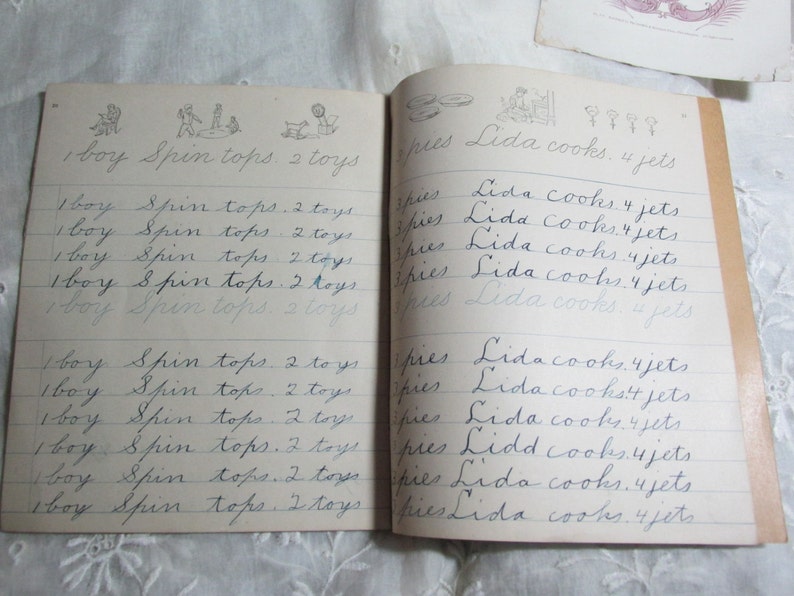 20
1 boy Spin tops. 2 toys
1 boy Spin tops. 2 toys
1 boy Spin tops. 2 toys
1 boy Spin tops. 2 toys
1 boy Spin tops. 2 toys
1 boy Spin tops. 2 toys
1 boy Spin tops. 2 toys
1 boy Spin tops. 2 toys
1 boy Spin tops. 2 toys
1 boy Spin tops. 2 toys
1 boy Spin tops. 2 toys
1 boy Spin tops. 2 toys
3 pies Lida cooks. 4 jets
3 pies Lida cooks. 4 jets
3 pies Lida cooks. 4 jets
3 pies Lida cooks. 4 jets
3 pies Lida cooks. 4 jets
3 pies Lida cooks. 4 jets
3 pies Lida cooks. 4 jets
3 pies Lida cooks. 4 jets
3 pies Lida cooks. 4 jets
3 pies Lidd cooks. 4 jets
3 pies Lida cooks. 4 jets
pies Lida cooks. 4 jets